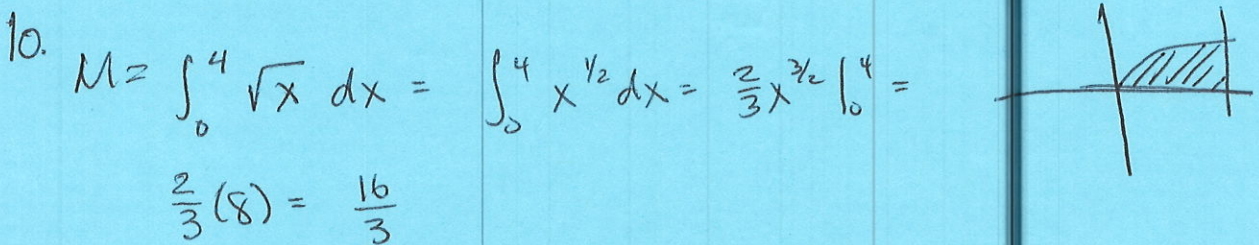 10. M = ∫₀⁴ √x dx = ∫₀⁴ x^{1/2} dx = 2/3 x^{3/2} |₀⁴ =
2/3 (8) = 16/3